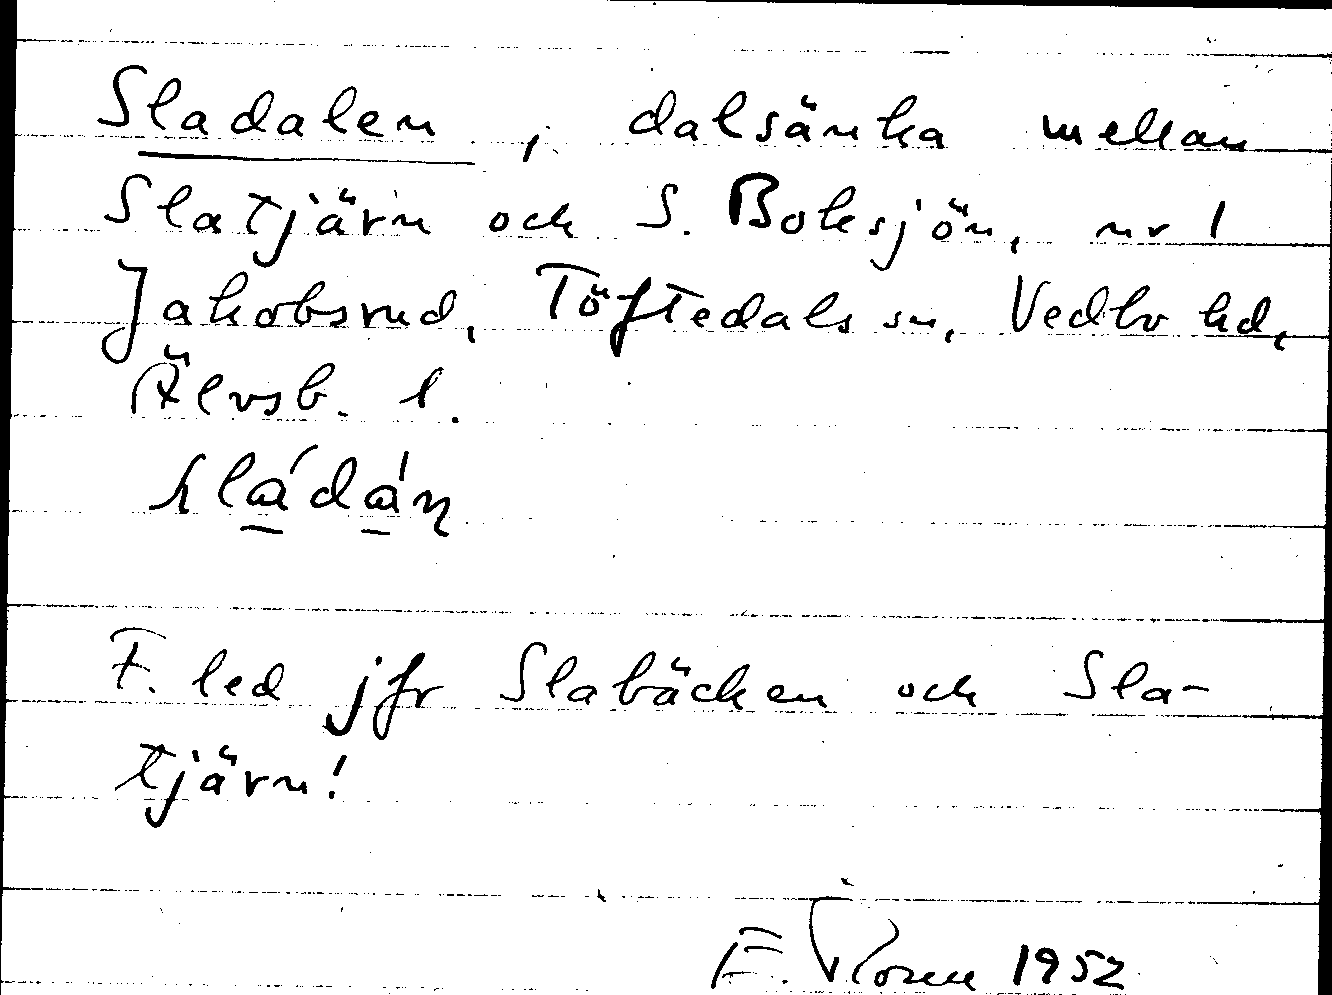 Sladalen, dalsänka mellan
Slatjärn och S. Boksjön, nr 1
Jakobsrud, Töftedals sn, Vedbo hd,
Älvsb. l.
F. led jfr Slabäcken och Sla-
tjärn!
E. 1952